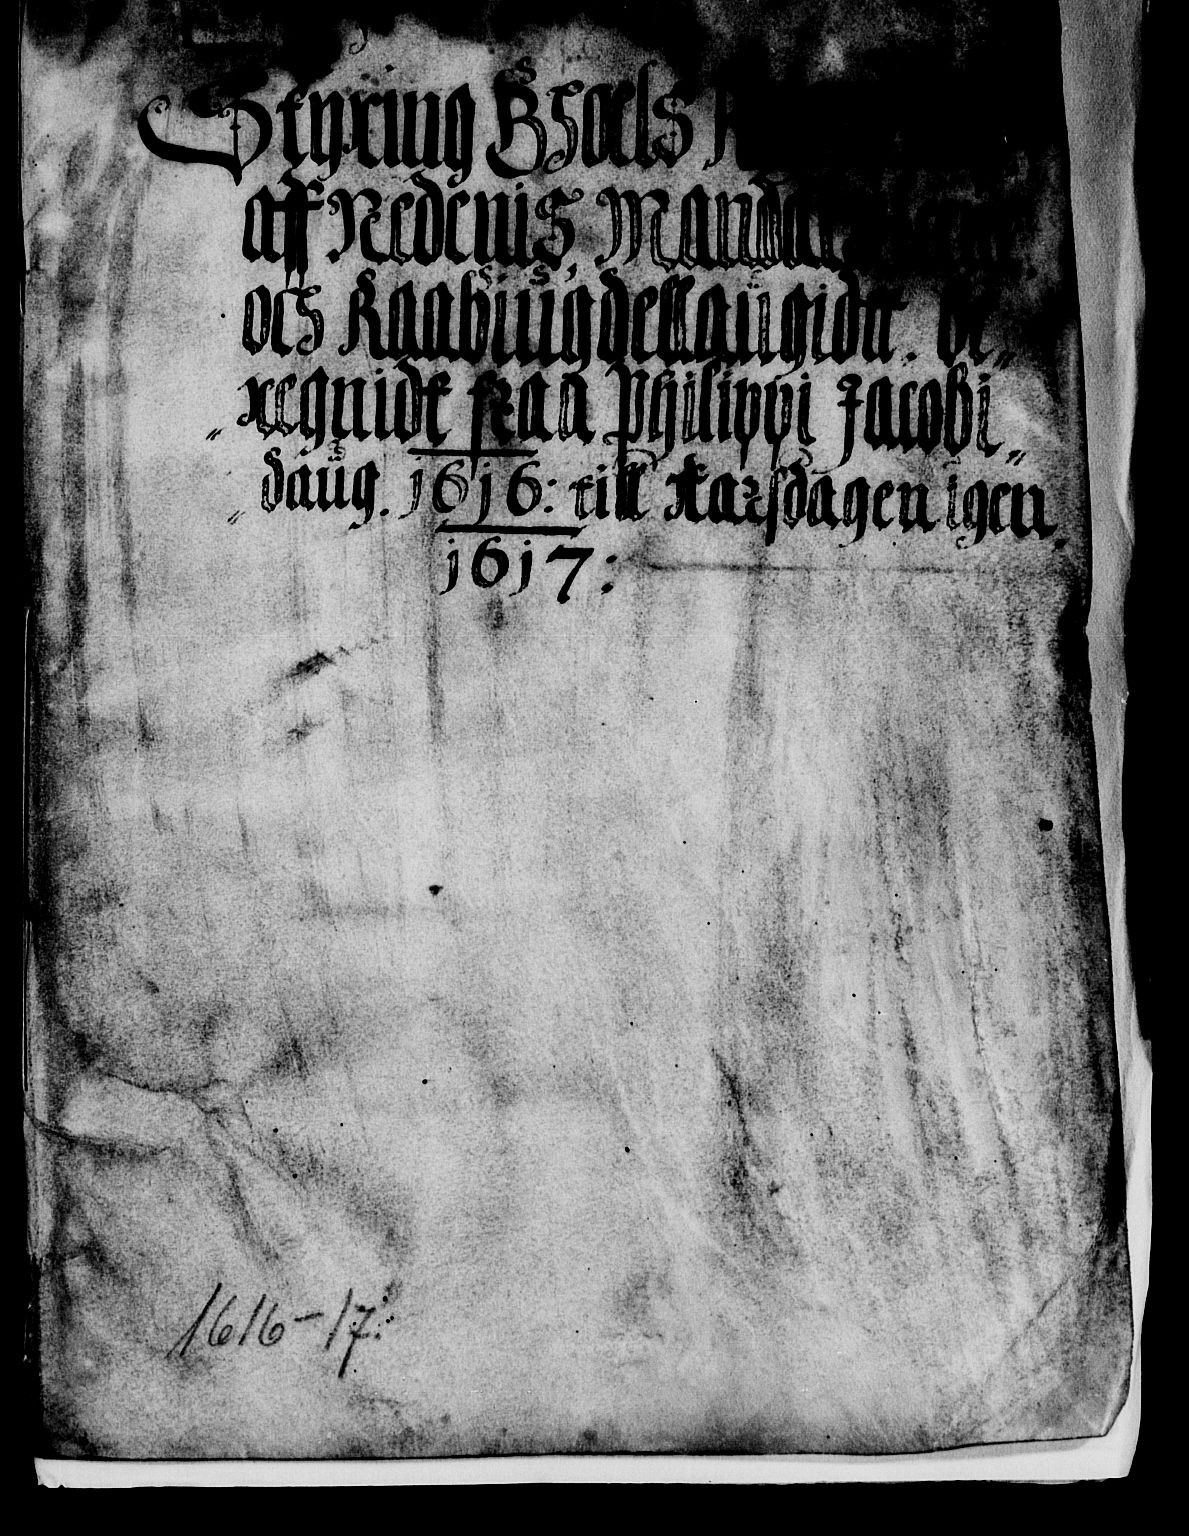 Styring Boels
aff Nedenis, Mandals
och Raabiugdellaugidtt. be„
„regnidt fraa Philippi Jacobi„
„ daug. 1616: till Aarsdagen igen
1617:
1616-17.